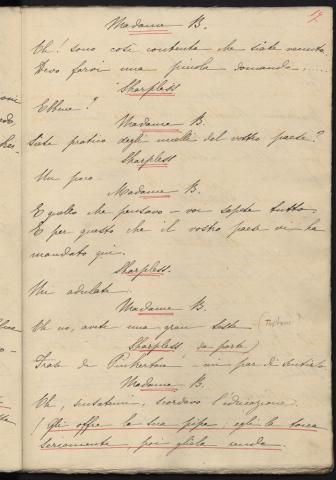 17
Madame B.
Oh! sono così contenta che siate venuto.
Devo farvi una piccola domanda.....
Sharpless
Ebbene?
Madame B.
Siete pratico degli uccelli del vostro paese?
Sharpless
Un poco.
Madame B.
È quello che pensavo – voi sapete tutto.
È per questo che il vostro paese vi ha
mandato qui.
Sharpless.
Mi adulate.
Madame B.
Oh no, avete una gran testa
Sharpless (a parte)
Testa di Pinkerton! – mi par di sentirlo
Madame B.
Oh, scusatemi, scordavo l'educazione.
(Gli offre la sua pipa; egli la tocca
seriamente, poi gliela rende.